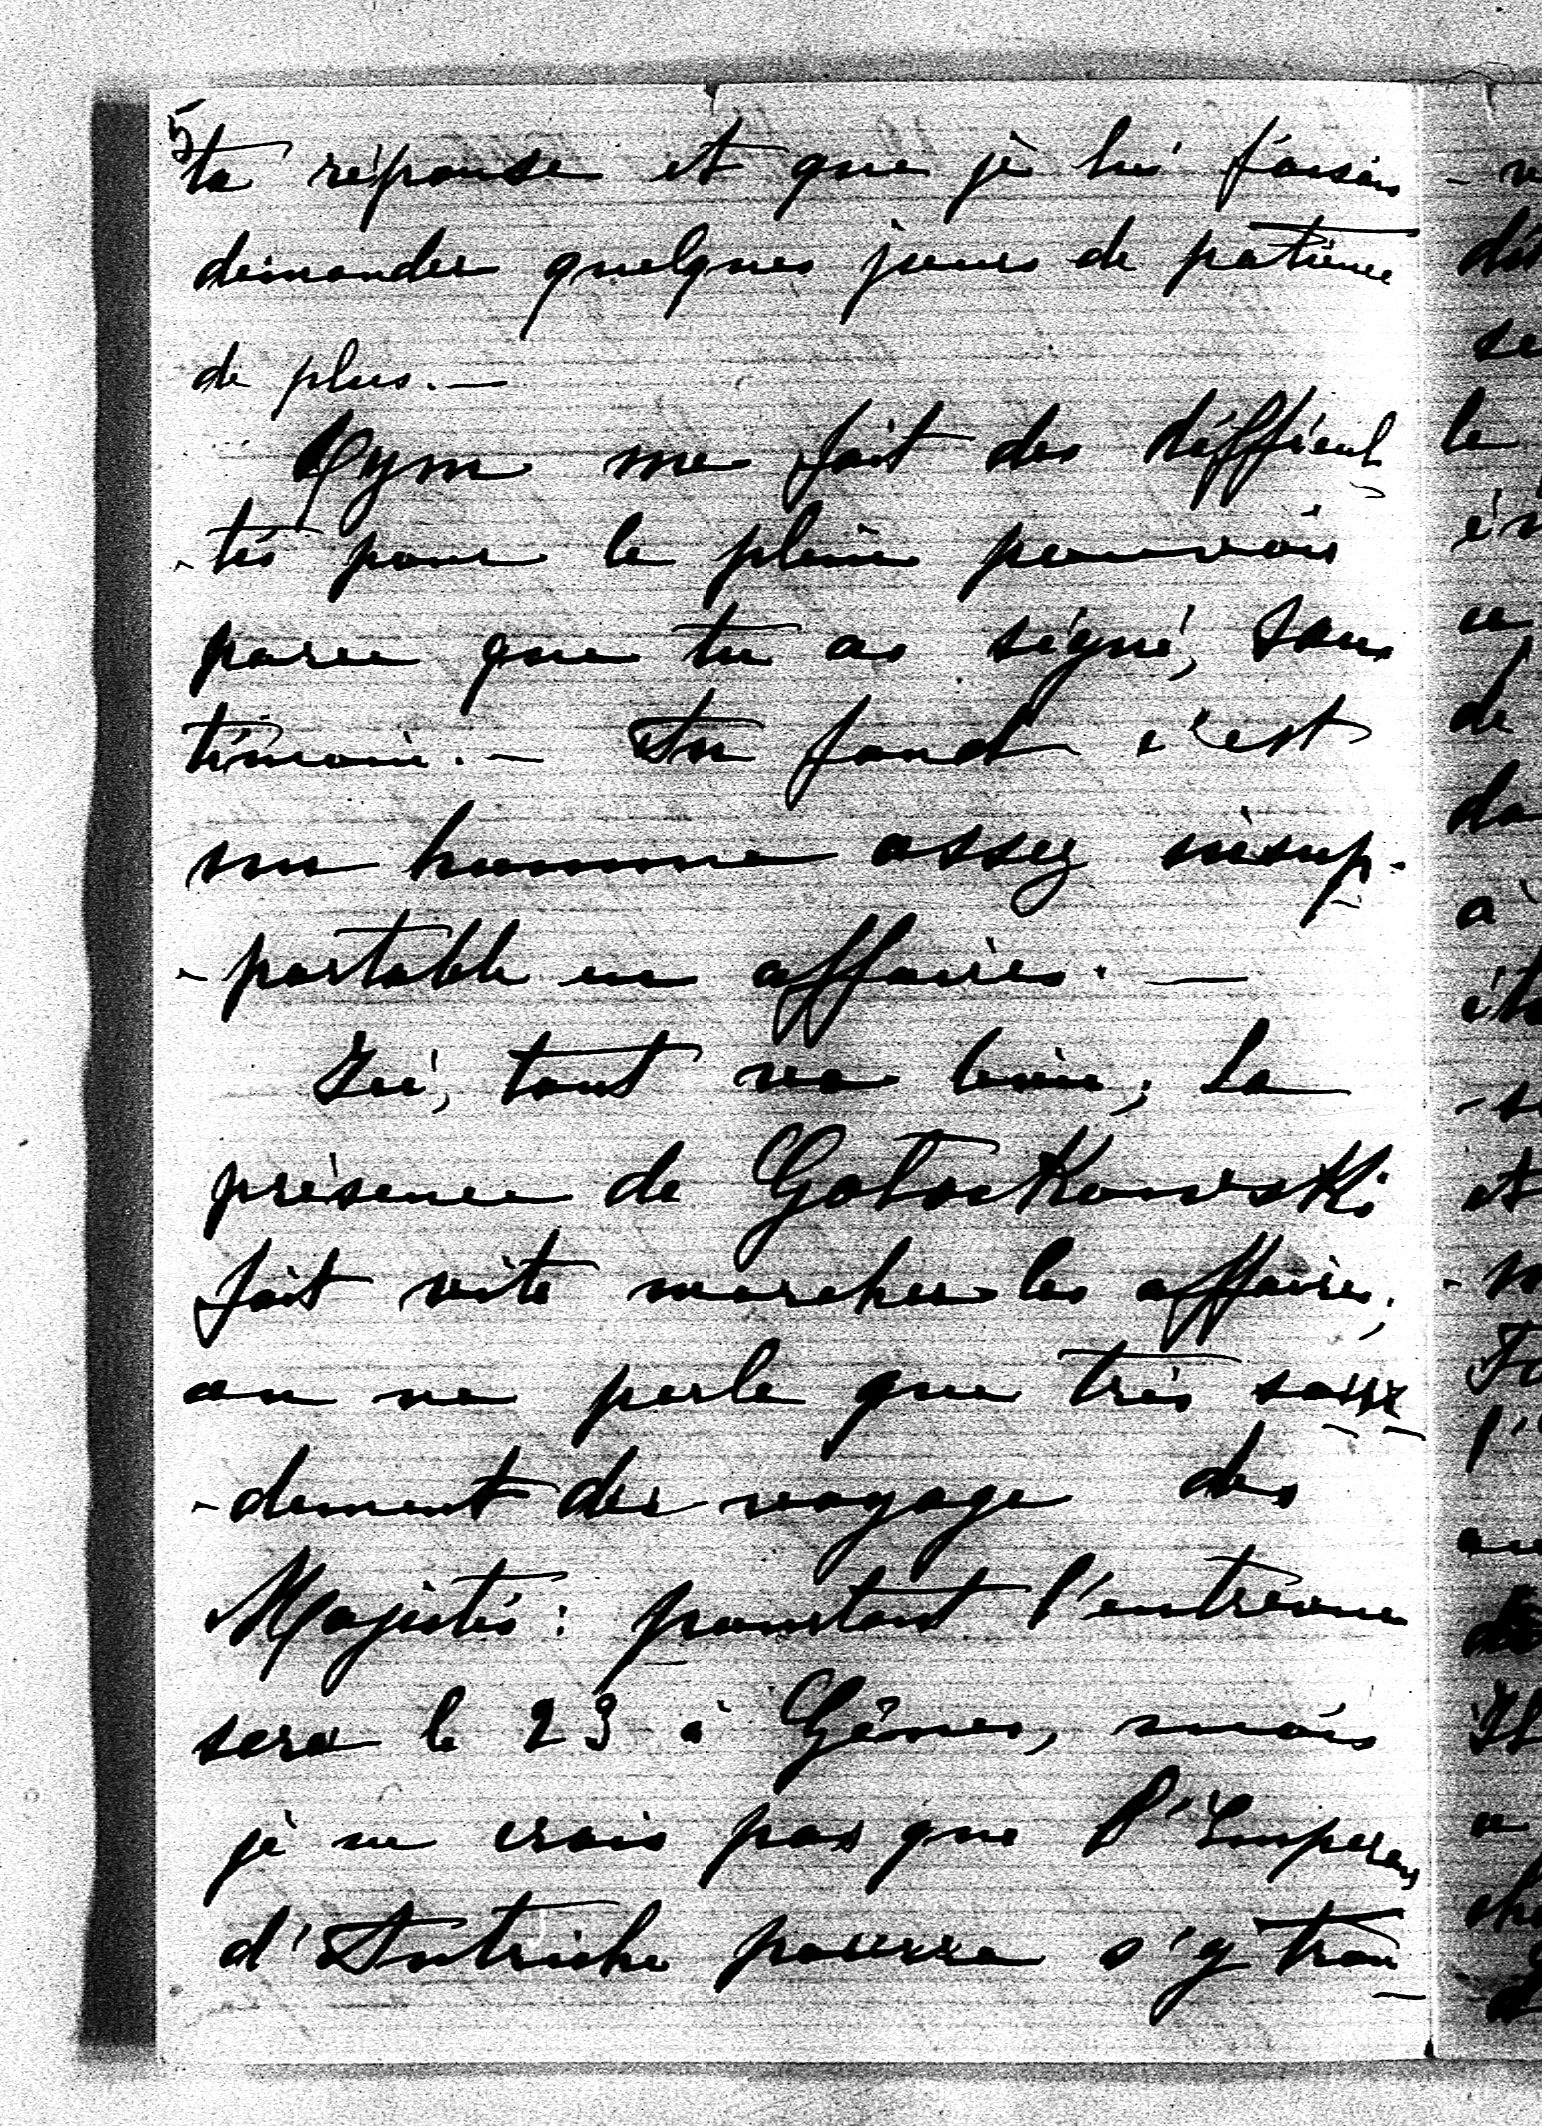 5
ta réponse et que je lui faisais
demander quelques jours de patience
de plus. —
Gym me fait des difficul
-tés pour le plein pouvoir
parce que tu as signé, sans
témoin. — Au fond c'est
un homme assez insup-
-portable en affaires. —
Ici, tout va bien, la
présence de Gołuchowski
fait vite marcher les affaires,
on ne parle que très sour
-dement du voyage des
Majestés: pourtant l'entrevue
sera le 23 à Gênes, mais
je ne crois pas que l'Empereur
d'Autriche pourra s'y trou